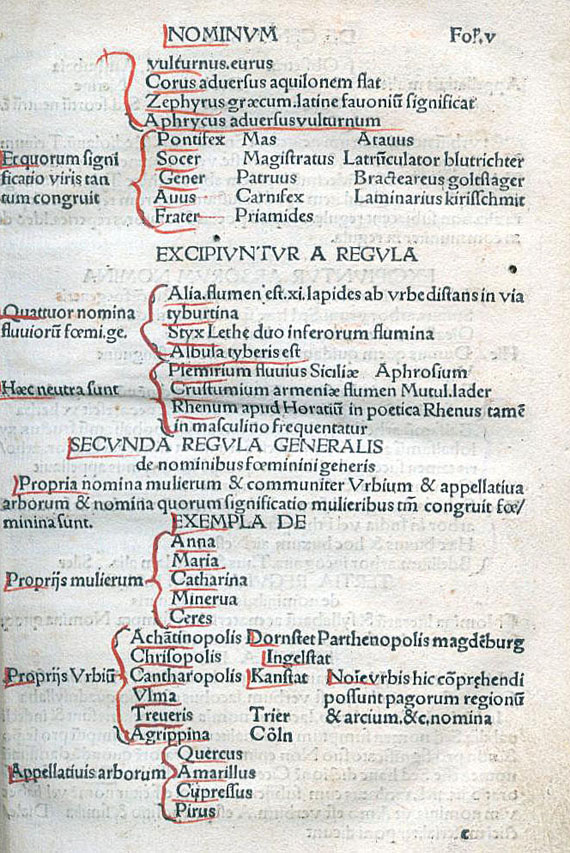 NOMINVM Fol.v
vulturnus.eurus
Corus aduersus aquilonem flat
Zephyrus græcum.latine fauoniū significat
Aphrycus aduersusvulturnum
Et quorum signi
ficatio viris tan
tum congruit
Pontifex Mas Atauus
Socer Magistratus Latrūculator blutrichter
Gener Patruus Bracteareus goltslager
Auus Carnifex Laminarius kirisschmit
Frater Priamides
EXCIPIVNTVR A REGVLA
Quattuor nomina
fluuiorū fœmi.ge.
Alia.flumen est.xi.lapides ab vrbe distans in via
tyburtina
Styx Lethe duo inferorum flumina
Albula tyberis est
Hæc neutra sunt
Plemirium fluuius Siciliæ Aphrosium
Crustumium armeniæ flumen Mutul.lader
Rhenum apud Horatiū in poetica Rhenus tamē
in masculino frequentatur
SECVNDA REGVLA GENERALIS
de nominibus fœminini generis
Propria nomina mulierum & communiter Vrbium & appellatiua
arborum & nomina quorum significatio mulieribus tm̄ congruit fœ/
minina sunt. EXEMPLA DE
Proprijs mulierum
Anna
Maria
Catharina
Minerua
Ceres
Proprijs Vrbiū
Achātinopolis Dornstet Parthenopolis magdēburg
Chrisopolis Ingelstat
Cantharopolis Kanstat Noīe vrbis hic cōprehendi
Vlma possunt pagorum regionū
Treueris Trier & arcium.&c.nomina
Agrippina Cöln
Appellatiuis arborum
Quercus
Amarillus
Cypressus
Pirus
c